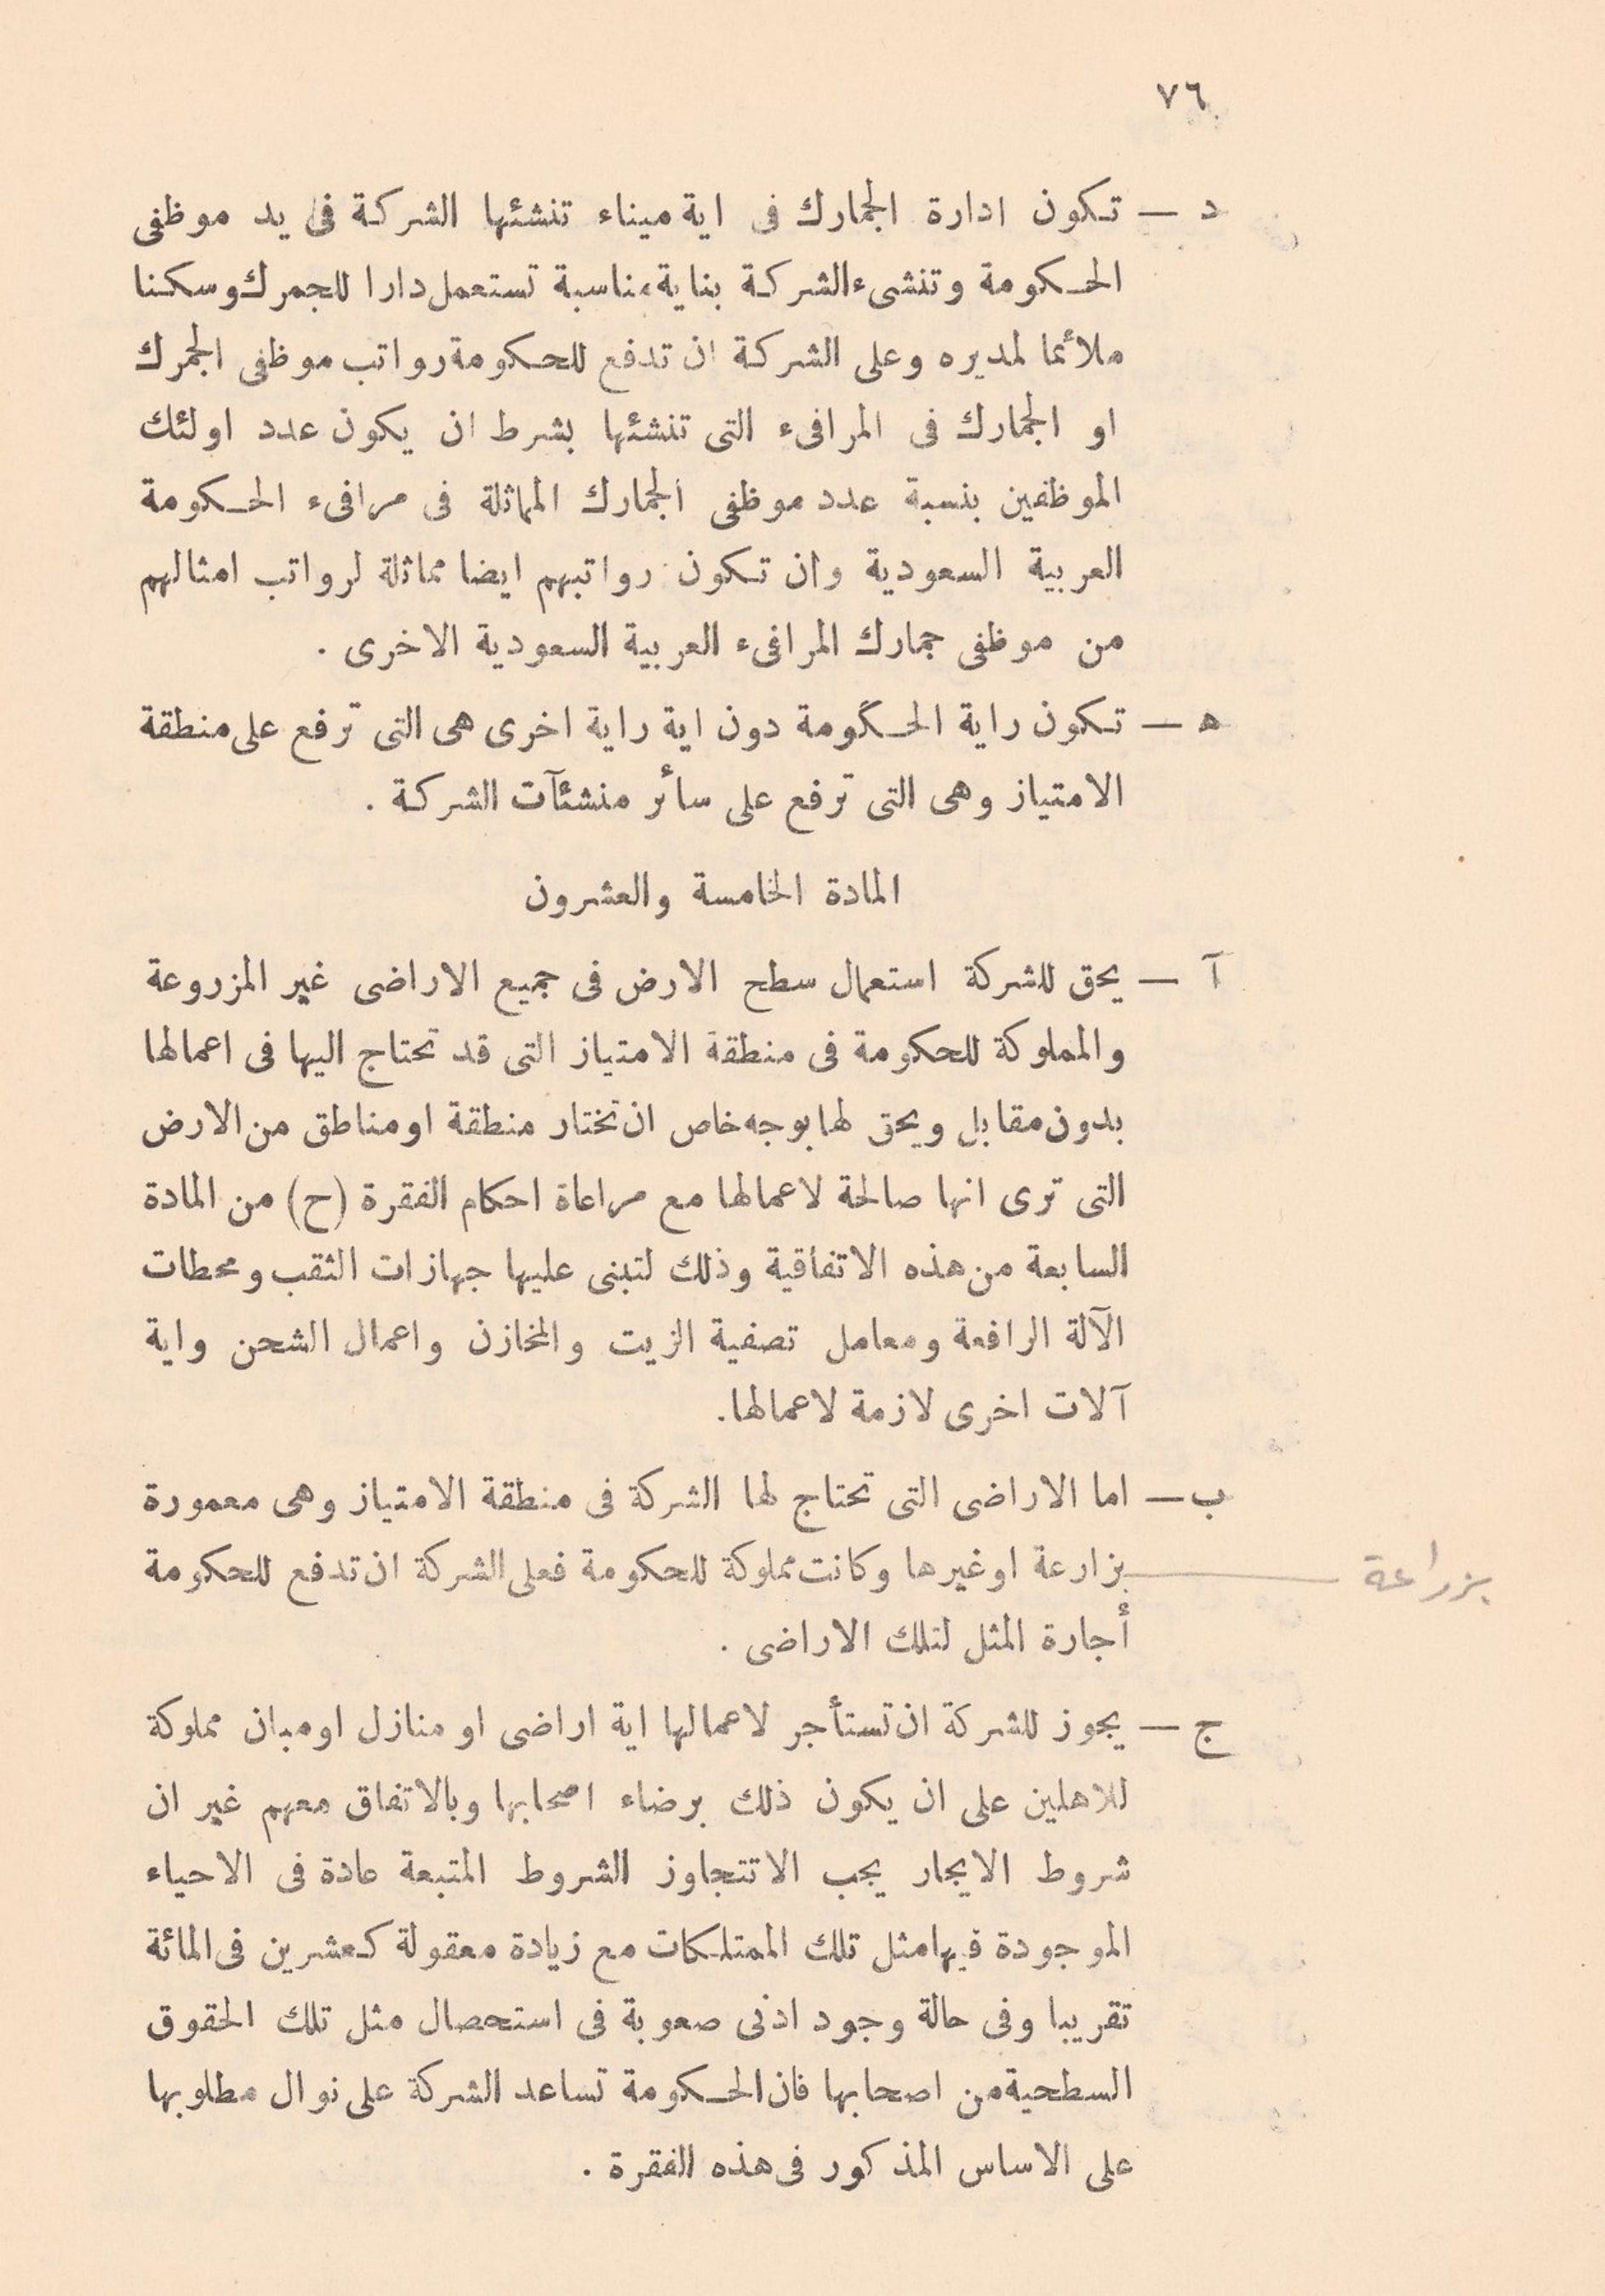 ٧٦
د — تكون ادارة الجمارك فى اية ميناء تنشئها الشركة فى يد موظفى
الحكومة وتنشىء الشركة بناية مناسبة تستعمل دارا للجمرك وسكنا
ملائما لمديره وعلى الشركة ان تدفع للحكومة رواتب موظفى الجمرك
او الجمارك فى المرافىء التى تنشئها بشرط ان يكون عدد اولئك
الموظفين بنسبة عدد موظفى الجمارك المماثلة فى مرافىء الحكومة
العربية السعودية وان تكون رواتبهم ايضا مماثلة لرواتب امثالهم
من موظفى جمارك المرافىء العربية السعودية الاخرى .
ه — تكون راية الحكومة دون اية راية اخرى هى التى ترفع على منطقة
الامتياز وهى التى ترفع على سائر منشئآت الشركة .
المادة الخامسة والعشرون
آ — يحق للشركة استعمال سطح الارض فى جميع الاراضى غير المزروعة
والمملوكة للحكومة فى منطقة الامتياز التى قد تحتاج اليها فى اعمالها
بدون مقابل ويحق لها بوجه خاص ان تختار منطقة او مناطق من الارض
التى ترى انها صالحة لاعمالها مع مراعاة احكام الفقرة (ح) من المادة
السابعة من هذه الاتفاقية وذلك لتبنى عليها جهازات الثقب ومحطات
الآلة الرافعة ومعامل تصفية الزيت والمخازن واعمال الشحن واية
آلات اخرى لازمة لاعمالها.
ب — اما الاراضى التى تحتاج لها الشركة فى منطقة الامتياز وهى معمورة
بزارعة او غيرها وكانت مملوكة للحكومة فعلى الشركة ان تدفع للحكومة
بزراعة
أجارة المثل لتلك الاراضى .
ج — يجوز للشركة ان تستأجر لاعمالها اية اراضى او منازل او مبان مملوكة
للاهلين على ان يكون ذلك برضاء اصحابها وبالاتفاق معهم غير ان
شروط الايجار يجب الا تتجاوز الشروط المتبعة عادة فى الاحياء
الموجودة فيها مثل تلك الممتلكات مع زيادة معقولة كعشرين فى المائة
تقريبا وفى حالة وجود ادنى صعوبة فى استحصال مثل تلك الحقوق
السطحية من اصحابها فان الحكومة تساعد الشركة على نوال مطلوبها
على الاساس المذكور فى هذه الفقرة .